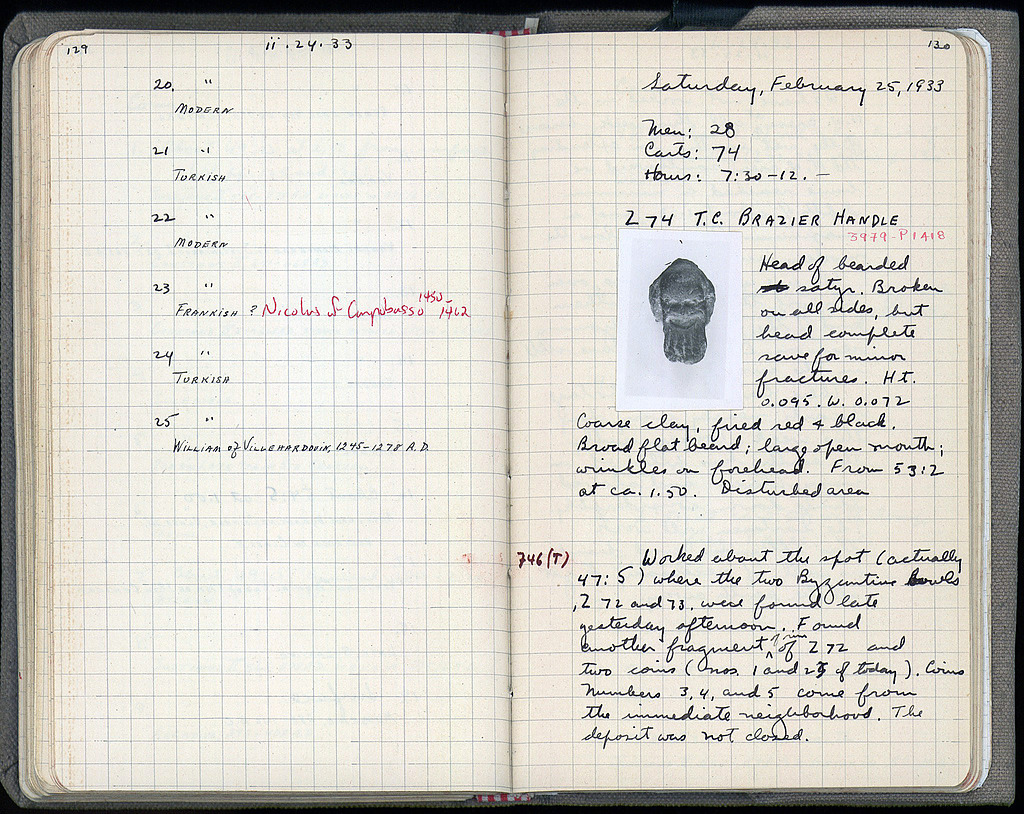 129
ii . 24 . 33
20. "
MODERN
21 "
TURKISH
22 "
MODERN
23 "
FRANKISH ? Nicolus of Campobasso 1450-1462
24 "
TURKISH
25 "
WILLIAM of VILLEHARDOUIN, 1245-1278 A.D.
130
Saturday, February 25, 1933
Men: 28
Carts: 74
Hours: 7:30-12. -
Z 74 T.C. BRAZIER HANDLE
3979-P 1418
Head of bearded
satyr. Broken
on all sides, but
head complete
save for minor
fractures. Ht.
0.095. W. 0.072
Coarse clay, fired red & black.
Broad flat beard; large open mouth;
wrinkles on forehead. From 53:2
at ca. 1.50. Disturbed area
746 (T)
Worked about the spot (actually
47:5) where the two Byzantine bowls
, Z 72 and 73. were found late
yesterday afternoon. Found
another fragment of rim of Z 72 and
two coins (nos. 1 and 2 of today). Coins
numbers 3, 4, and 5 come from
the immediate neighborhood. The
deposit was not closed.